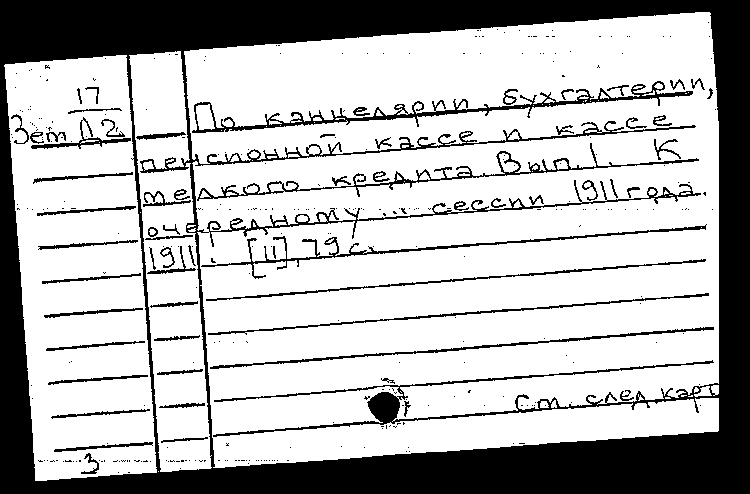 17
Зет Д2
По канцелярии, бухгалтерии,
пенсионной кассе и кассе
мелкого кредита. Вып. 1. К
очередному ... сессии 1911 года.
1911. [II], 79 с.
См. след. карт
3